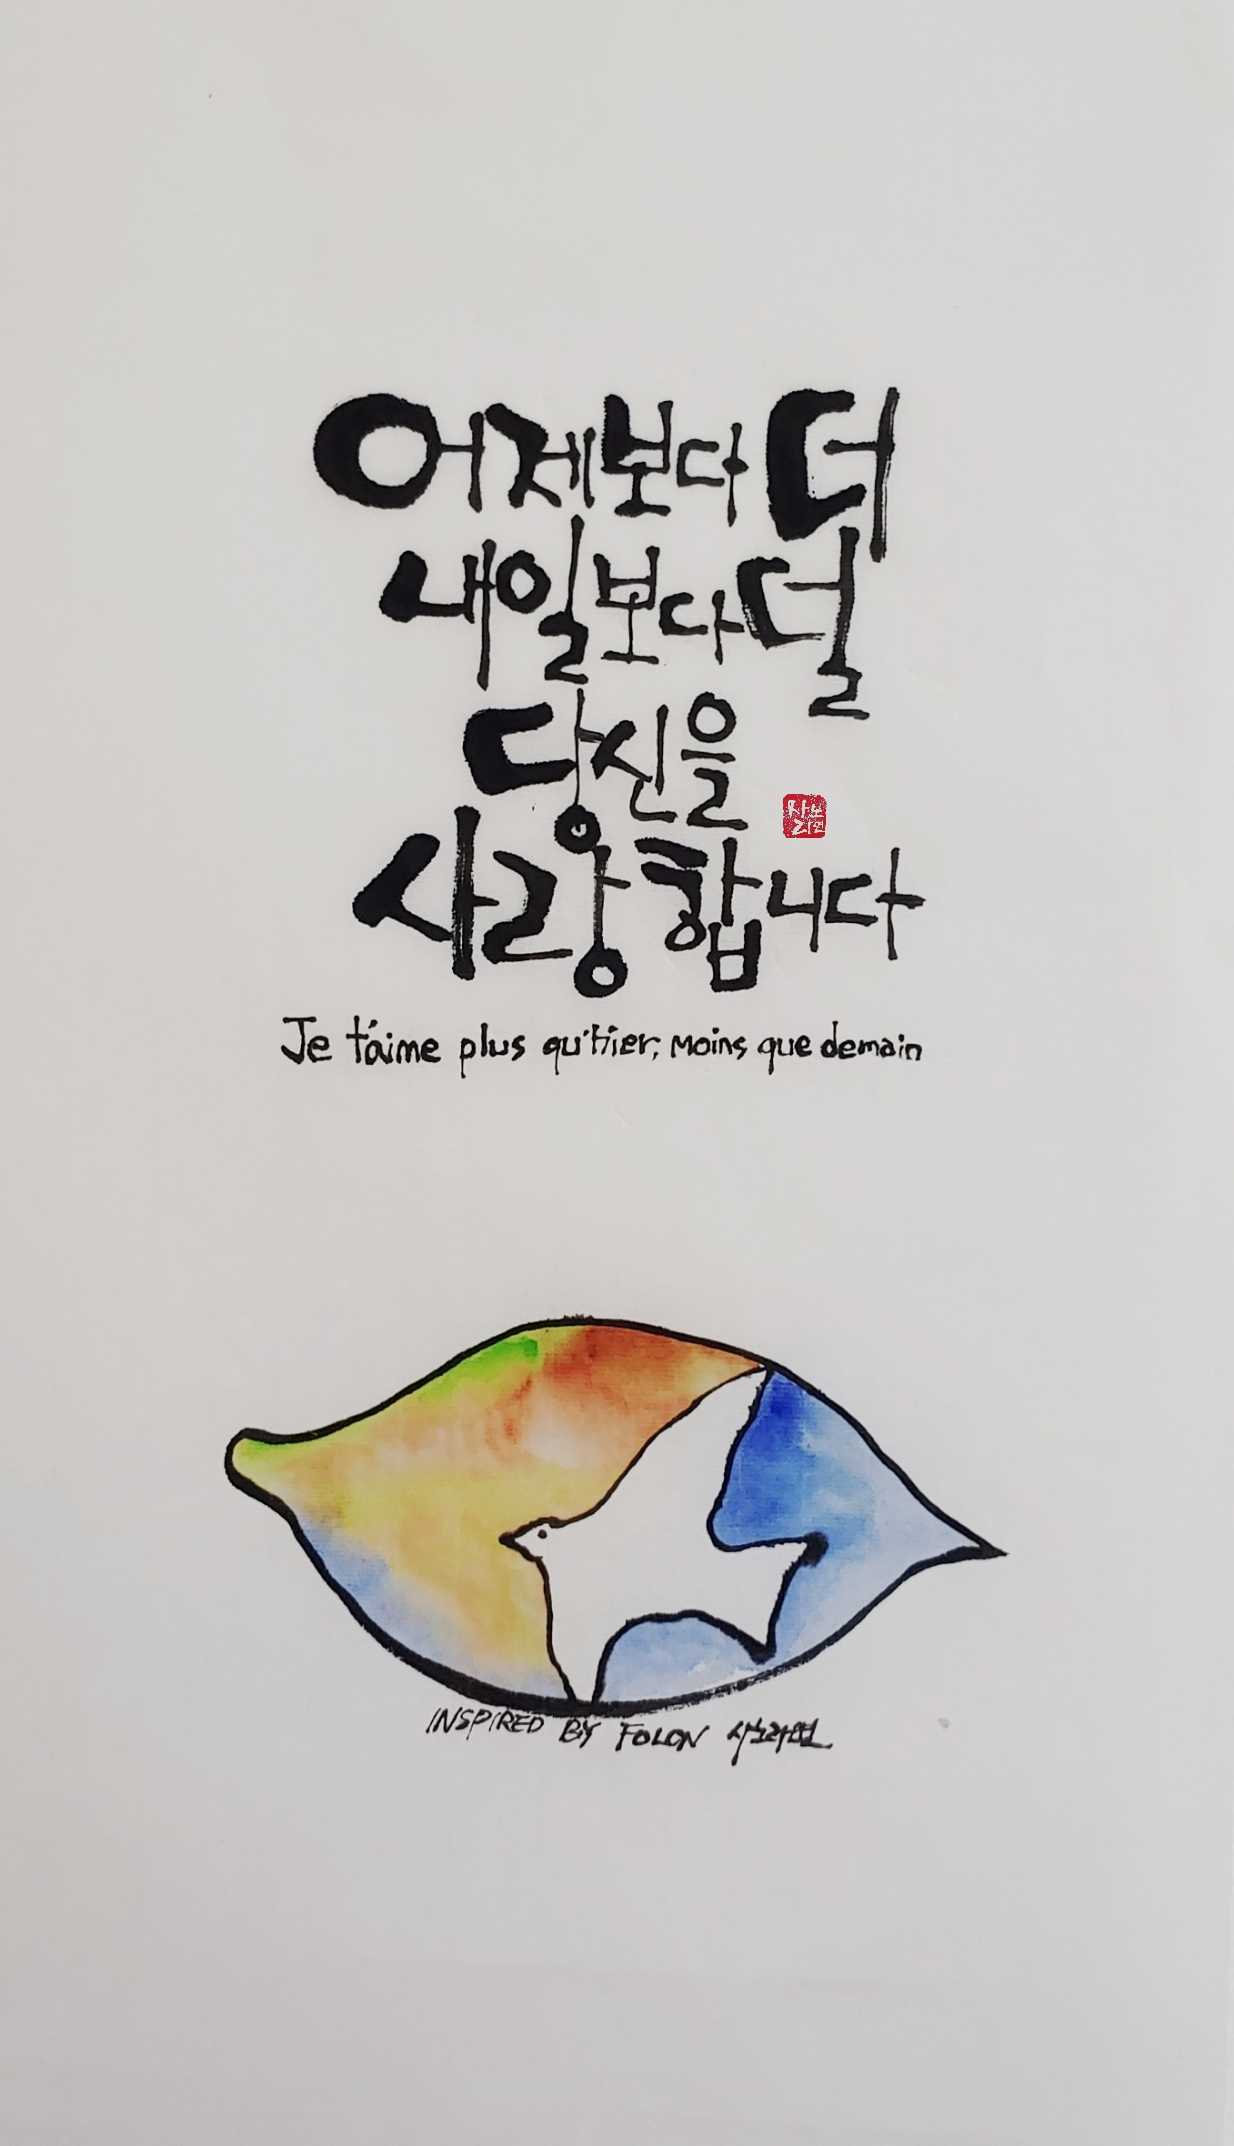 어제보다 더
내일보다 덜
당신을
사랑합니다
Je t'aime plus qu'hier, moins que demain
INSPIRED BY FOLON